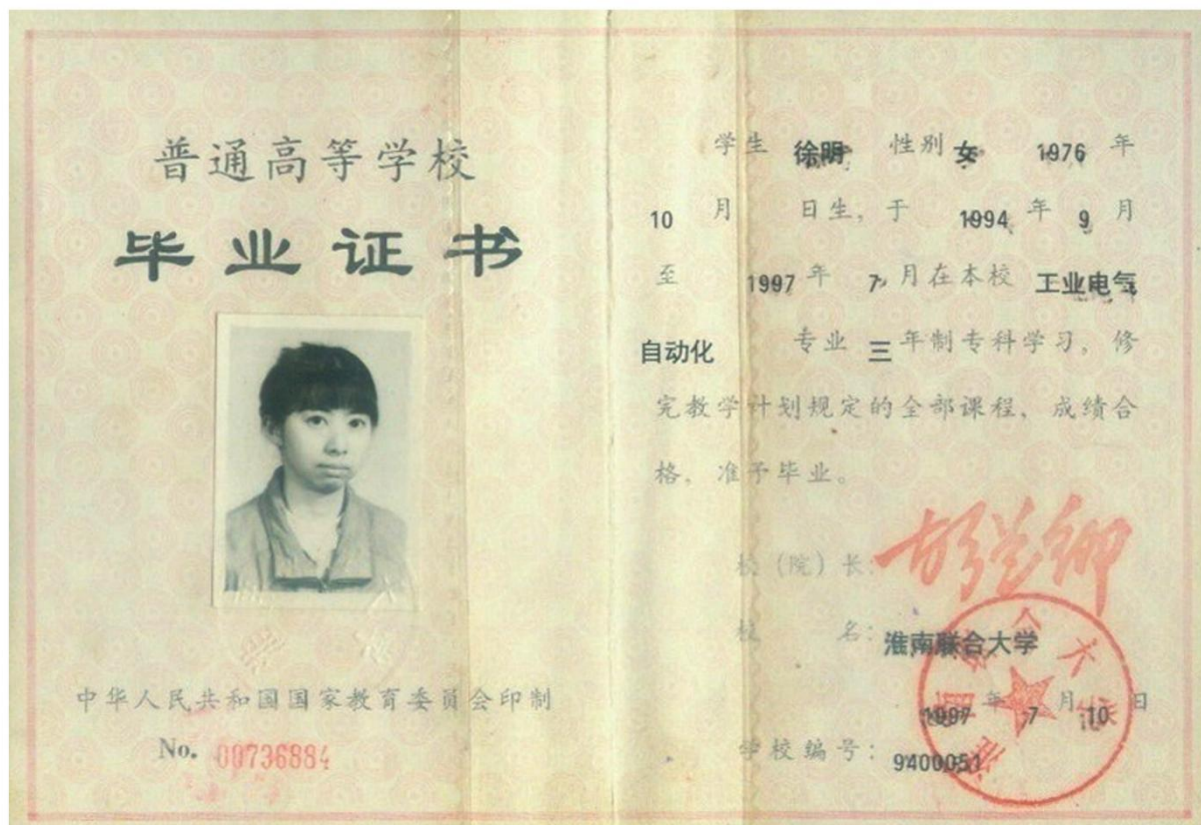 普通高等学校
毕业证书
中华人民共和国国家教育委员会印制
No. 00736884
学生 徐明 性别 女 1976 年
10 月 日生, 于 1994 年 9 月
至 1997 年 7 月在本校 工业电气
自动化 专业 三 年制专科学习, 修
完教学计划规定的全部课程, 成绩合
格, 准予毕业。
校 (院) 长:
校 名: 淮南联合大学
1997 年 7 月 10 日
学校编号: 9400051
淮南联合大学